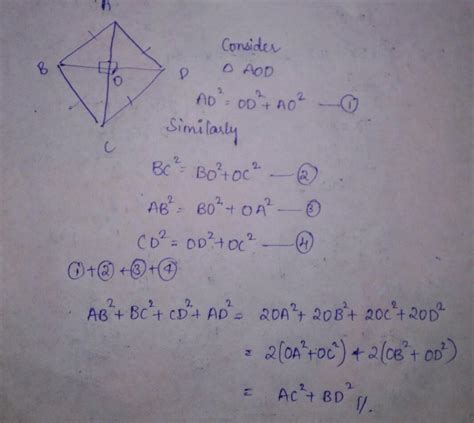 A
B
D
O
C
Consider
△ AOD
AD² = OD² + AO² — ①
Similarly
BC² = BO² + OC² — ②
AB² = BO² + OA² — ③
CD² = OD² + OC² — ④
① + ② + ③ + ④
AB² + BC² + CD² + AD² = 2OA² + 2OB² + 2OC² + 2OD²
= 2(OA² + OC²) + 2(OB² + OD²)
= AC² + BD² //.